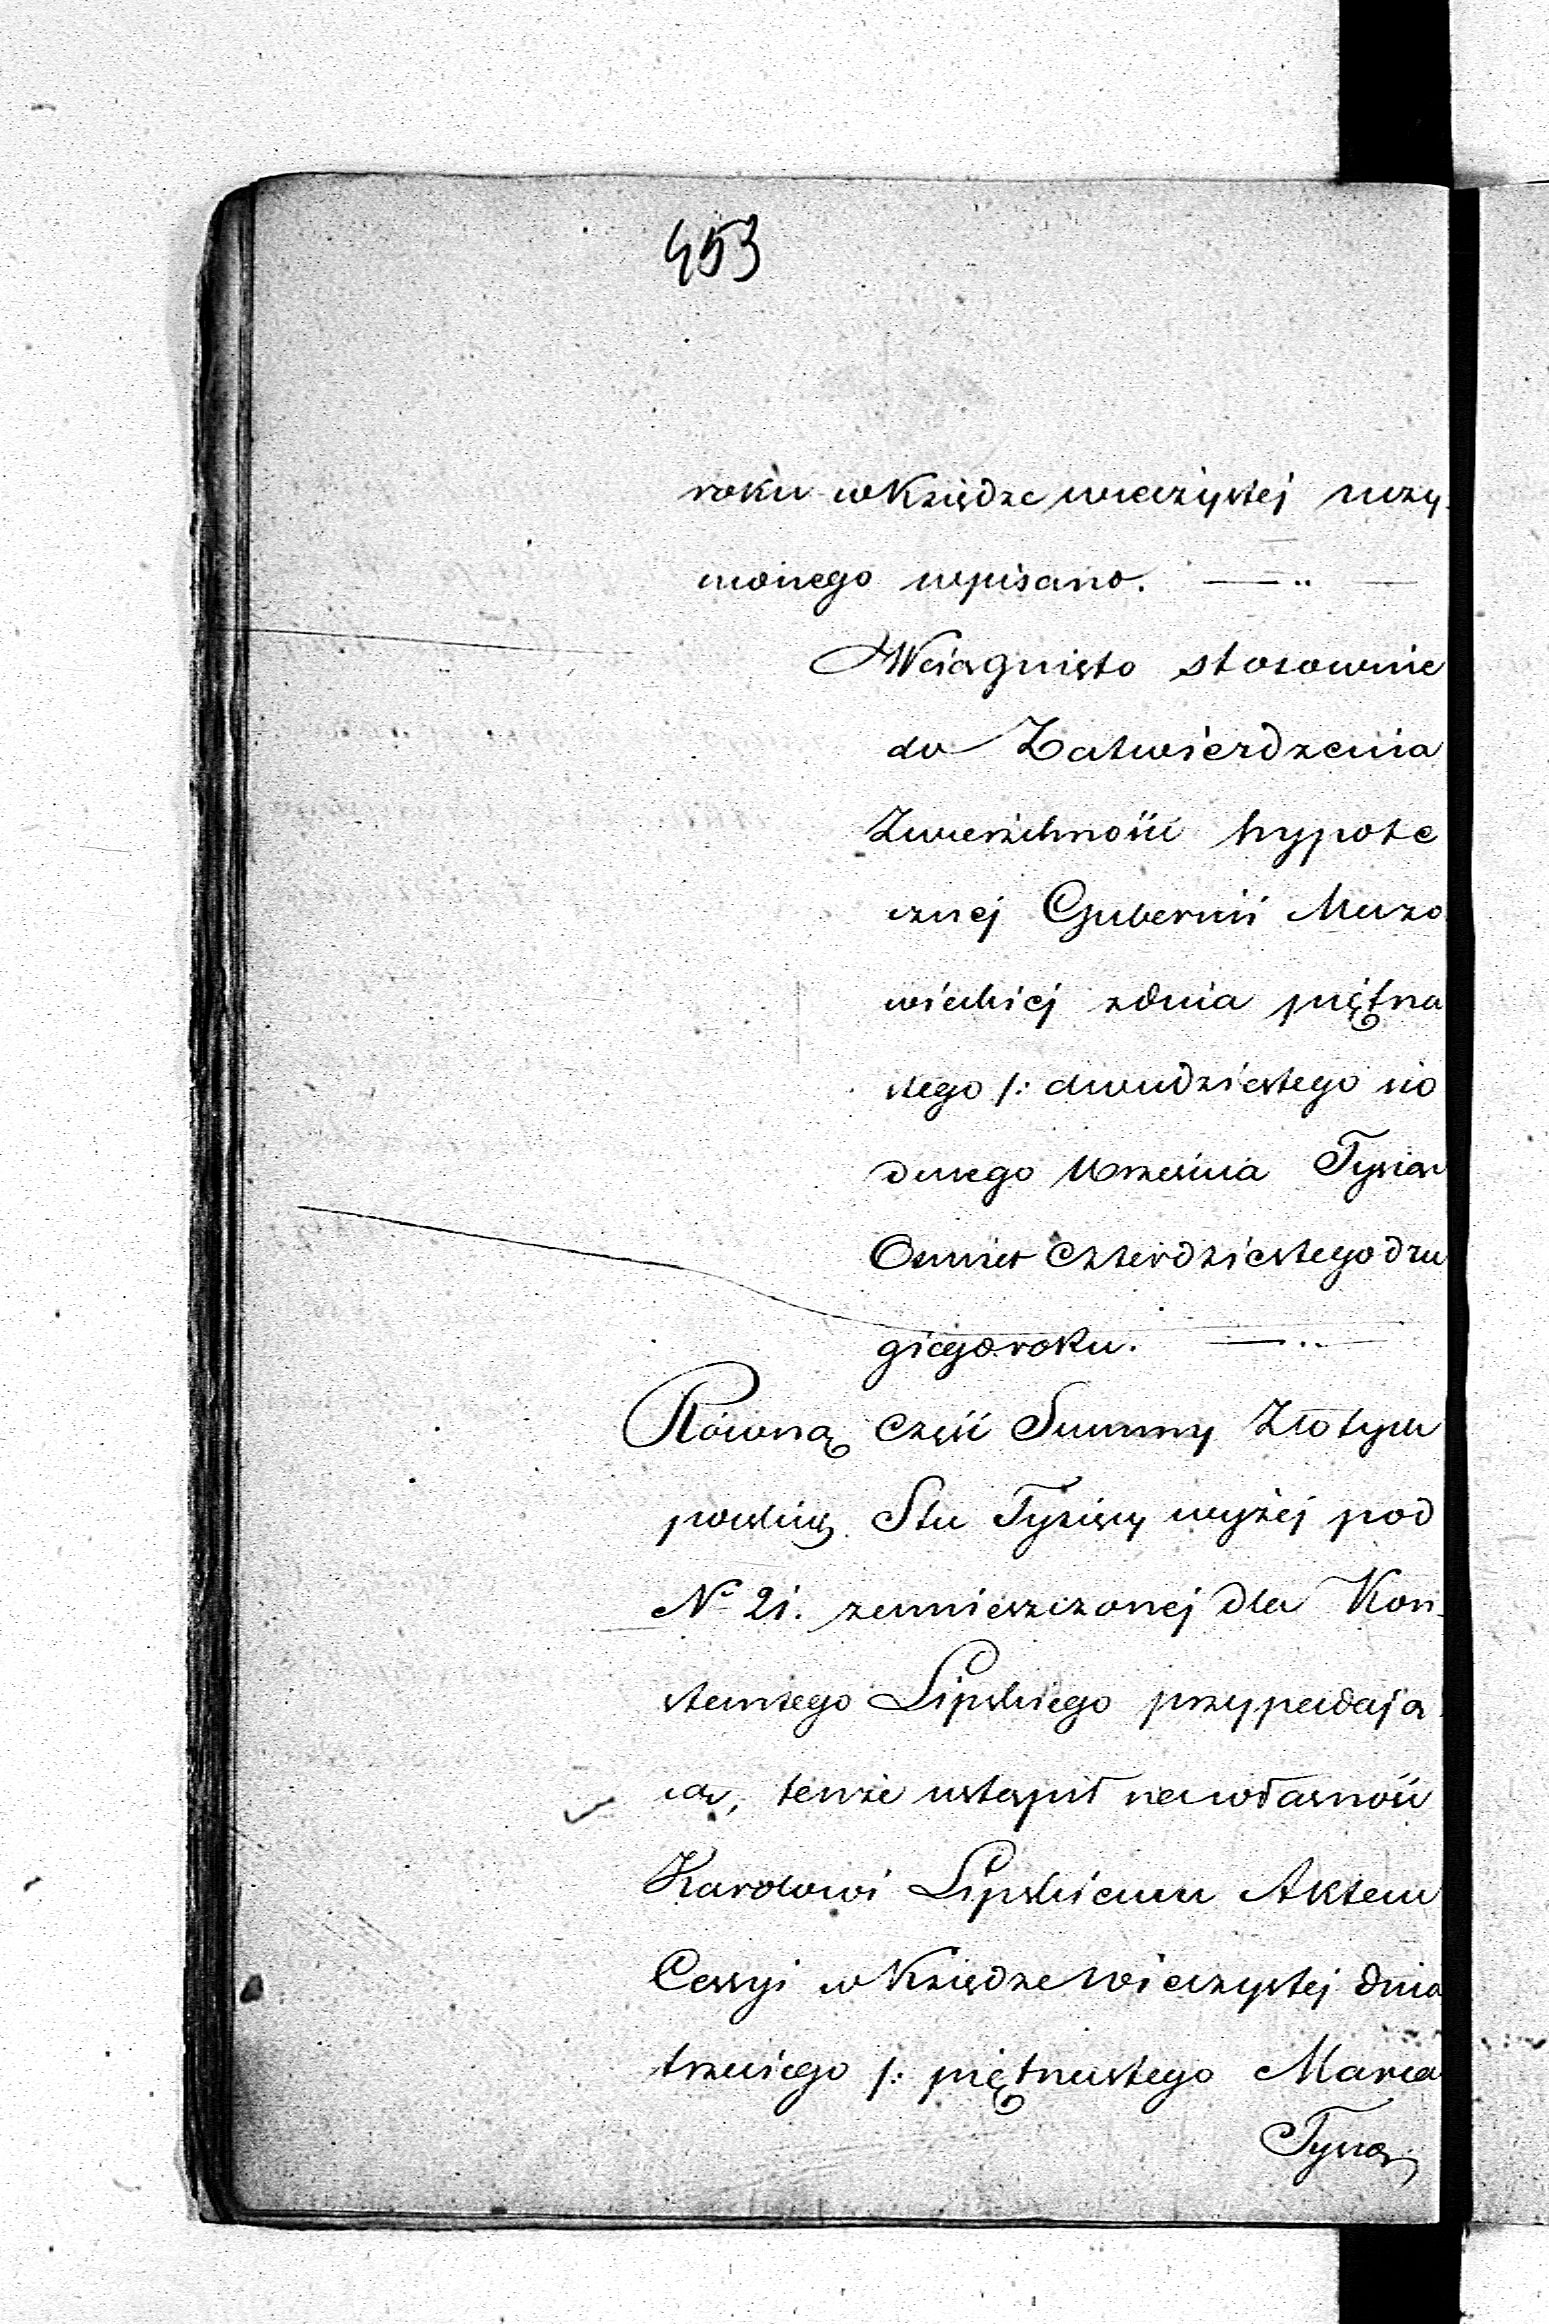 453
roku w Księdze wieczystej uczy-
nionego wpisano. —..—
Wciągnięto stosownie
do Zatwierdzenia
Zwierzchności hypote
cznej Gubernii Mazo
wieckiej z dnia piętna
stego /: dwudziestego sió
dmego Września Tysiąc
Ośmset Czterdziestego dru
giego roku. —..—
Równą część Summy Złotych
polskich Stu Tysięcy wyżej pod
No 21. zamieszczonej dla Kon-
stantego Lipskiego przypadają
cą, tenże ustąpił na własność
Karolowi Lipskiemu Aktem
Cessyi w Księdze Wieczystej dnia
trzeciego /: piętnastego Marca
Tysią